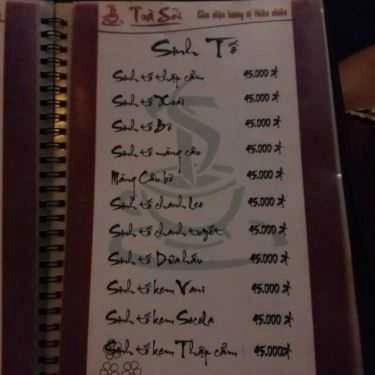 Cảm nhận hương vị thiên nhiên
Sinh Tố
Sinh tố thập cẩm 45.000 đ
Sinh tố Xoài 45.000 đ
Sinh tố Bơ 45.000 đ
Sinh tố mãng cầu 45.000 đ
Mãng Cầu bơ 45.000 đ
Sinh tố chanh leo 45.000 đ
Sinh tố chanh tuyết 45.000 đ
Sinh tố Dưa hấu 45.000 đ
Sinh tố kem Vani 45.000 đ
Sinh tố kem Socola 45.000 đ
Sinh tố kem Thập cẩm 45.000đ